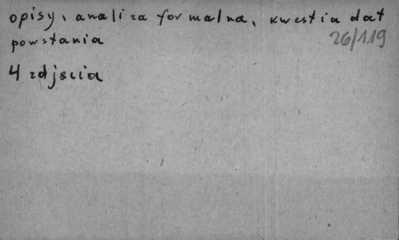 opisy, analiza formalna, kwestia dat
powstania
26/119
4 zdjęcia